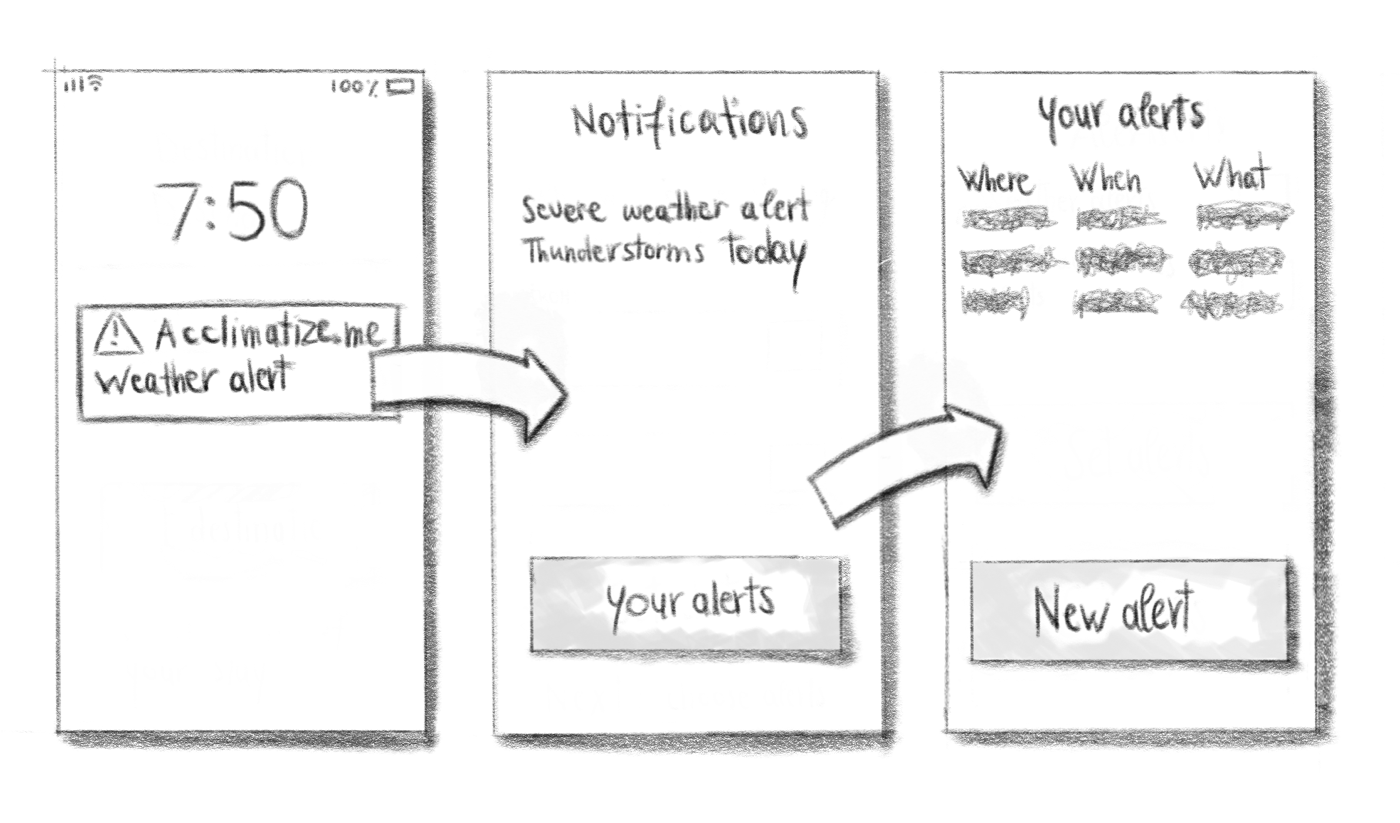 100%
7:50
Acclimatize.me
Weather alert
Notifications
Severe weather alert
Thunderstorms today
Your alerts
Your alerts
Where When What
New alert